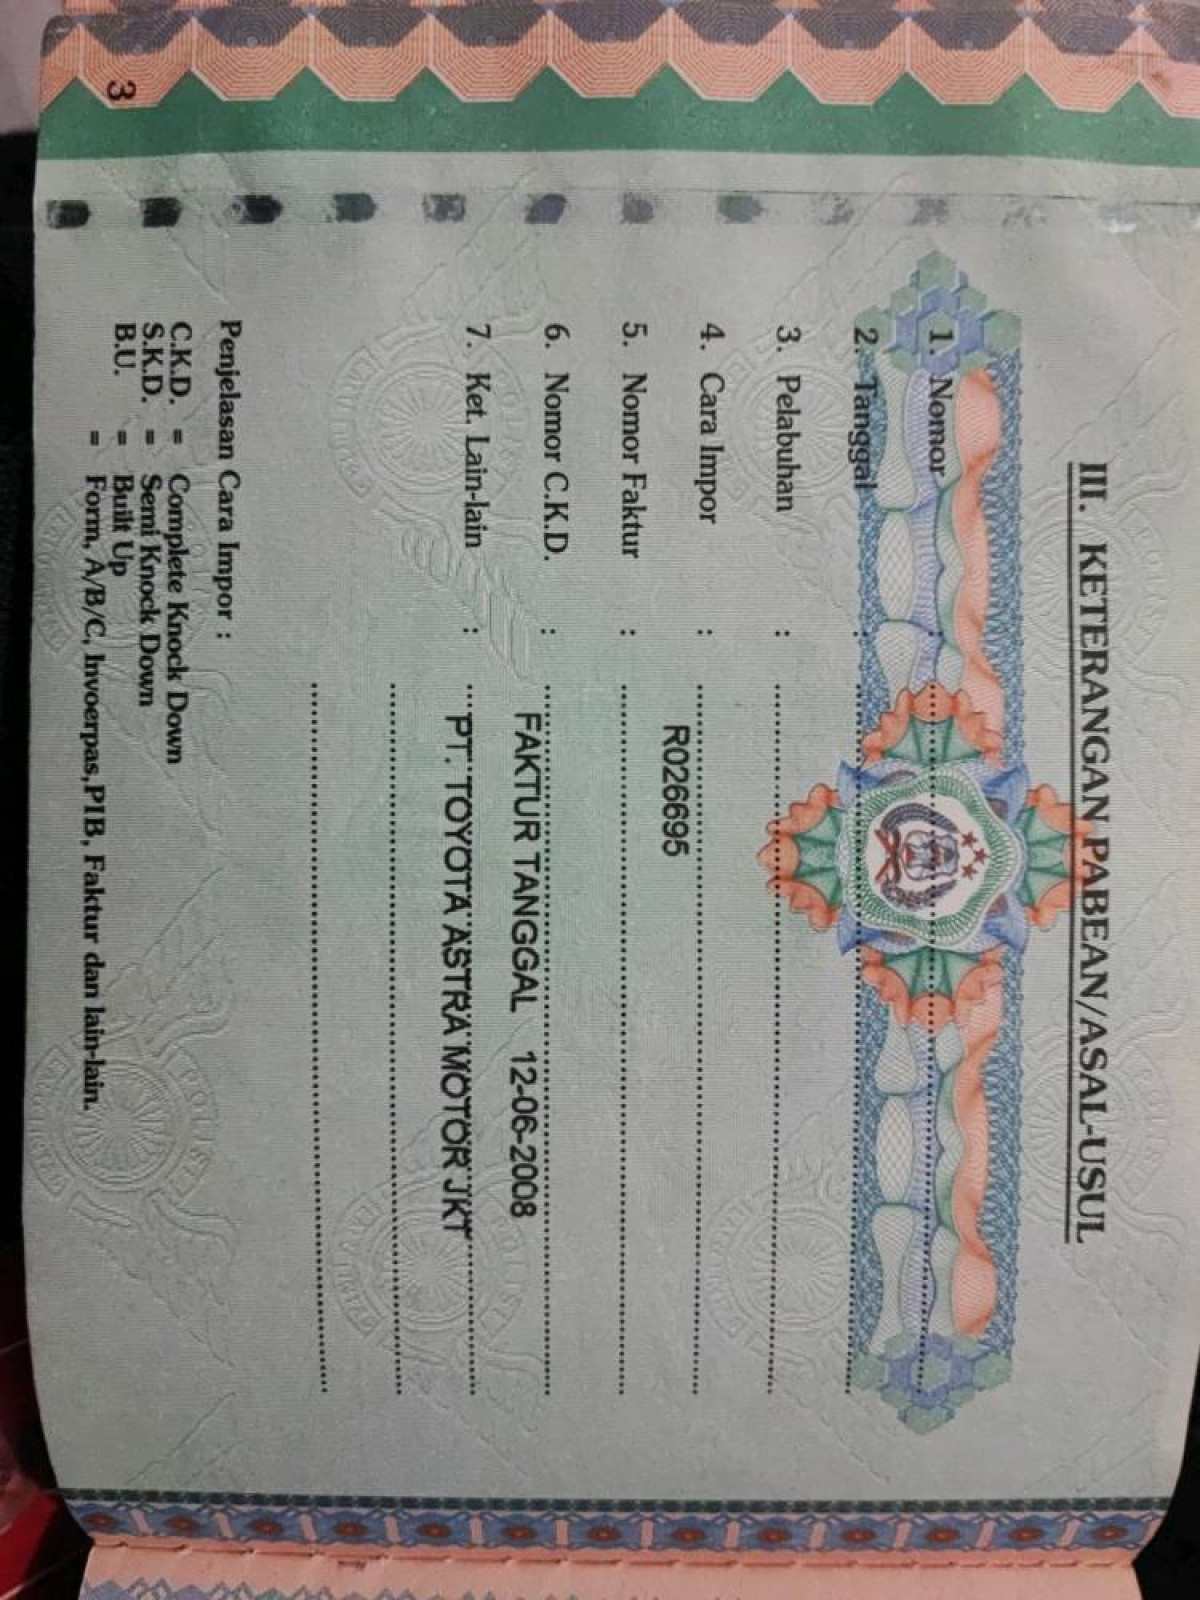 III. KETERANGAN PABEAN/ASAL-USUL
1. Nomor :
2. Tanggal :
3. Pelabuhan :
4. Cara Impor :
R026695
5. Nomor Faktur :
6. Nomor C.K.D. :
FAKTUR TANGGAL 12-06-2008
7. Ket. Lain-lain :
PT. TOYOTA ASTRA MOTOR JKT
Penjelasan Cara Impor :
C.K.D. = Complete Knock Down
S.K.D. = Semi Knock Down
B.U. = Built Up
= Form, A/B/C, Invoerpas,PIB, Faktur dan lain-lain.
3